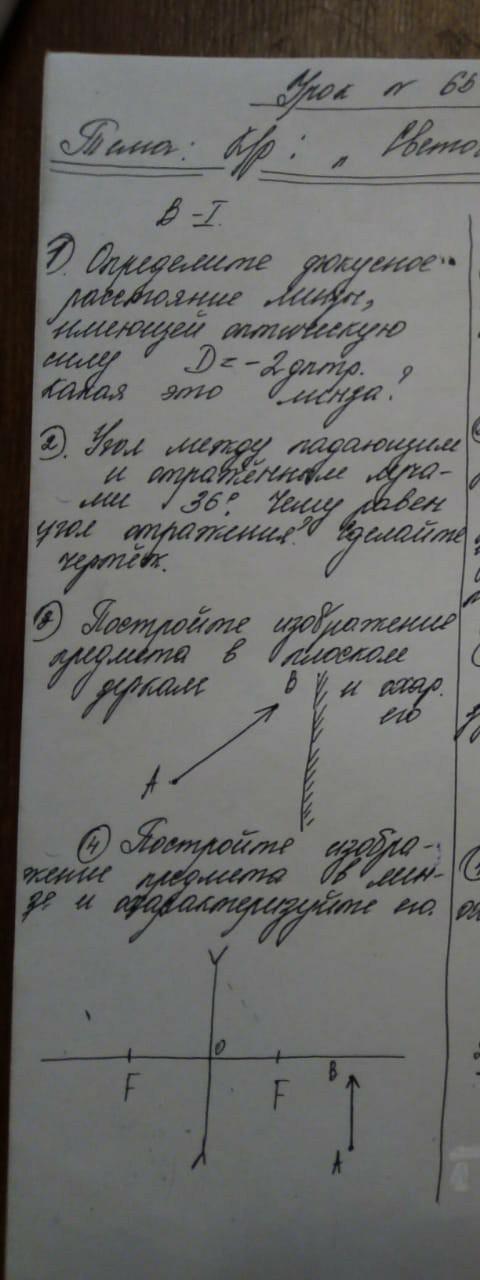 Урок № 65
Тема: К/р: „ Свето
В-I.
1). Определите фокусное
расстояние линзы,
имеющей оптическую
силу D = -2 дптр.
какая это линза?
2). Угол между падающим
и отражённым луча-
ми 36°. Чему равен
угол отражения? Сделайте
чертёж.
3 Постройте изображение
предмета в плоском
зеркале и охар.
его
B
A
4 Постройте изобра-
жение предмета в лин-
зе и охарактеризуйте его.
O
F
F
B
A